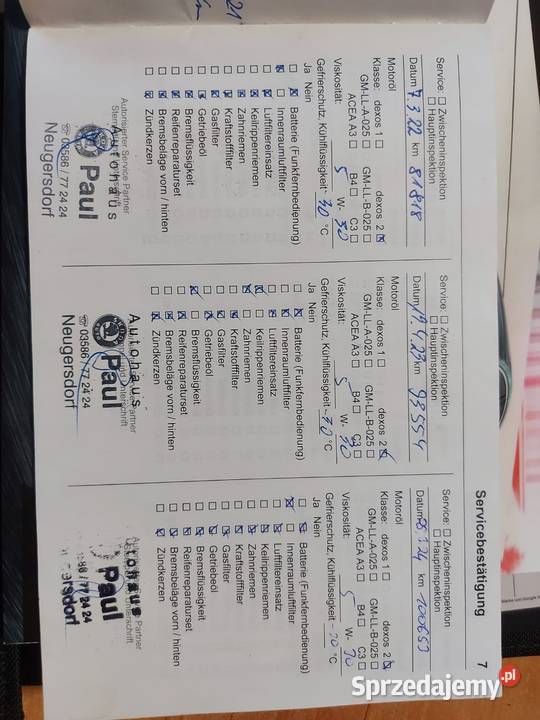 Servicebestätigung
7
Service: ☐ Zwischeninspektion
☐ Hauptinspektion
Datum 7.3.22 km 81818
Motoröl
Klasse: dexos 1 ☐ dexos 2 ☒
GM-LL-A-025 ☐ GM-LL-B-025 ☐
ACEA A3 ☐ B4 ☐ C3 ☐
Viskosität: 5 W- 30
Gefrierschutz, Kühlflüssigkeit: -30 °C
Ja Nein
Batterie (Funkfernbedienung)
Innenraumluftfilter
Luftfiltereinsatz
Keilrippenriemen
Zahnriemen
Kraftstofffilter
Gasfilter
Getriebeöl
Bremsflüssigkeit
Reifenreparaturset
Bremsbeläge vorn / hinten
Zündkerzen
Autorisierter Service Partner
Autohaus
Paul
☎ 03586 / 77 24 24
Neugersdorf
Service: ☐ Zwischeninspektion
☐ Hauptinspektion
Datum 19.4.23 km 93554
Motoröl
Klasse: dexos 1 ☐ dexos 2 ☒
GM-LL-A-025 ☐ GM-LL-B-025 ☐
ACEA A3 ☐ B4 ☐ C3 ☐
Viskosität: 5 W- 30
Gefrierschutz, Kühlflüssigkeit: -30 °C
Ja Nein
Batterie (Funkfernbedienung)
Innenraumluftfilter
Luftfiltereinsatz
Keilrippenriemen
Zahnriemen
Kraftstofffilter
Gasfilter
Getriebeöl
Bremsflüssigkeit
Reifenreparaturset
Bremsbeläge vorn / hinten
Zündkerzen
Autohaus
Paul
☎ 03586 / 77 24 24
Neugersdorf
Service: ☐ Zwischeninspektion
☐ Hauptinspektion
Datum km 100653
Motoröl
Klasse: dexos 1 ☐ dexos 2 ☒
GM-LL-A-025 ☐ GM-LL-B-025 ☐
ACEA A3 ☐ B4 ☐ C3 ☐
Viskosität: 5 W- 30
Gefrierschutz, Kühlflüssigkeit: °C
Ja Nein
Batterie (Funkfernbedienung)
Innenraumluftfilter
Luftfiltereinsatz
Keilrippenriemen
Zahnriemen
Kraftstofffilter
Gasfilter
Getriebeöl
Bremsflüssigkeit
Reifenreparaturset
Bremsbeläge vorn / hinten
Zündkerzen
Partner
Paul
77 24 24
Sprzedajemy.pl